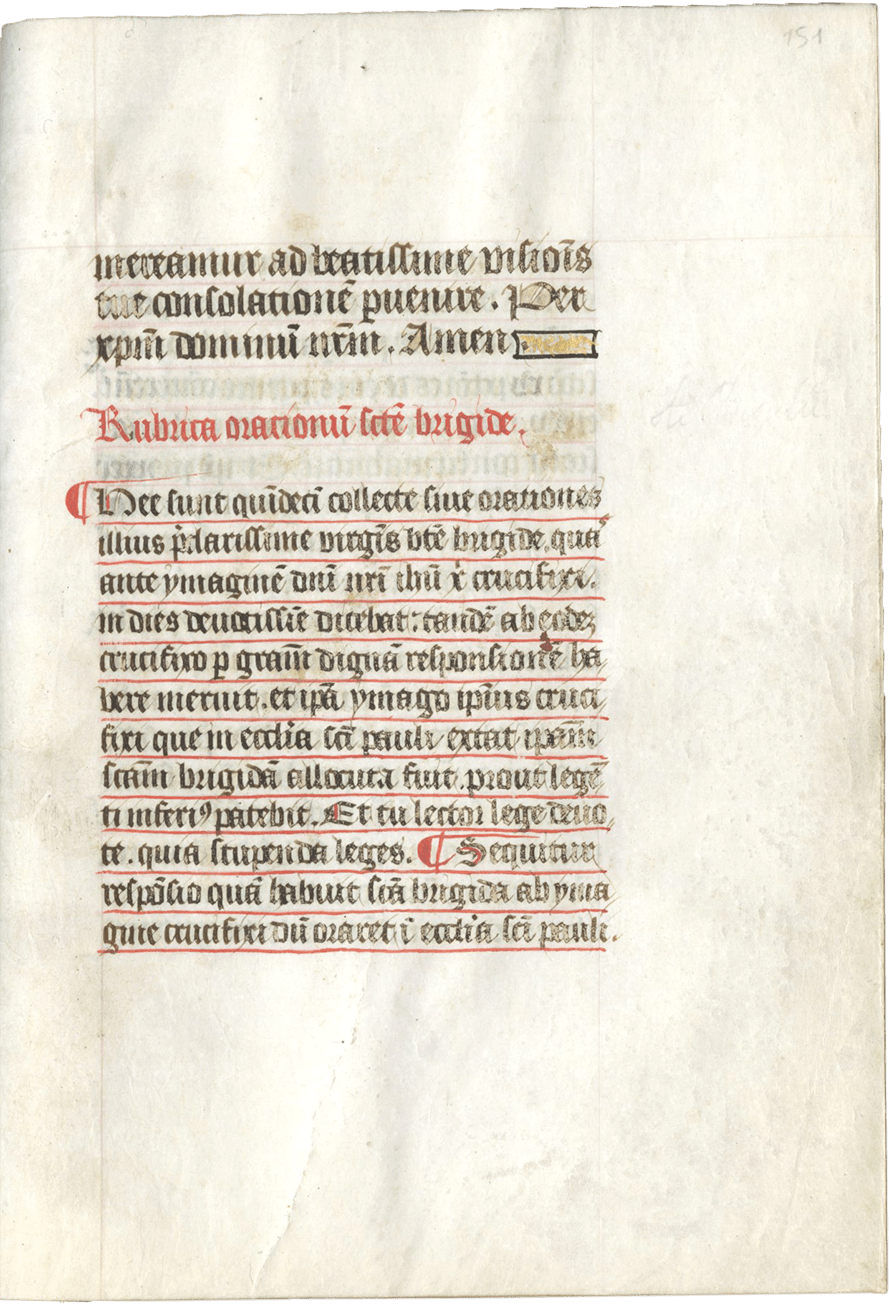 151
mereamur ad beatissime visiõis
tue consolationẽ ꝑuenire. Per
xp̃m dominũ nr̃m. Amen
Rubrica orationũ sctẽ brigide.
¶ Hec sunt quĩdecĩ collecte siue orationes
illius p̃clarissime virgĩs btẽ brigide, quã
ante ymaginẽ dnĩ nr̃i ihũ x̃ crucifixi.
in dies deuotissĩe dicebat: tandẽ ab eodeꝫ
crucifixo ꝑ gram̃ dignã responsionẽ ha
bere meruit. et ip̃a ymago ip̃ius cruci
fixi que in ecclĩa scĩ pauli extat ip̃am̃
scam̃ brigidã allocuta fuit. prout legẽ
ti inferiꝰ patebit. Et tu lector lege deuo,
te. quia stupenda leges. ¶ Sequitur
respõsio quã habuit scã brigida ab yma
gine crucifixi dũ oraret ĩ ecclĩa scĩ pauli.